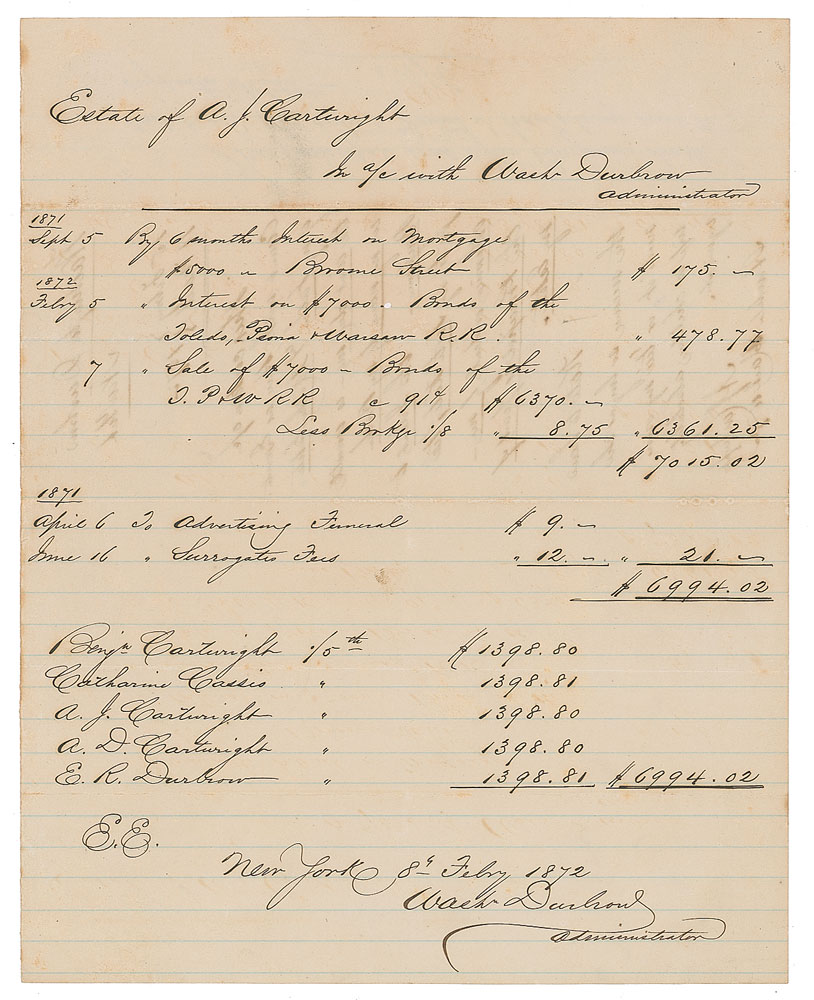 Estate of A. J. Cartwright
In a/c with Wash Durbrow
Administrator
1871
Sept 5 By 6 months Interest on Mortgage
$5000 – Broome Street $ 175. –
1872
Feby 5 " Interest on $7000 – Bonds of the
Toledo, Peoria & Warsaw R.R. " 478.77
7 " Sale of $7000 – Bonds of the
T. P & W RR c 91¢ $ 6370. –
Less Brokge 1/8 " 8.75 " 6361.25
$ 7015.02
1871
April 6 To Advertising Funeral $ 9. –
June 16 " Surrogates Fees " 12. – " 21. –
$ 6994.02
Benjn Cartwright 1/5th $ 1398.80
Catharine Cassio " 1398.81
A. J. Cartwright " 1398.80
A. D. Cartwright " 1398.80
E. R. Durbrow " 1398.81 $ 6994.02
E.E.
New York 8 Feby 1872
Wash Durbrow
Administrator